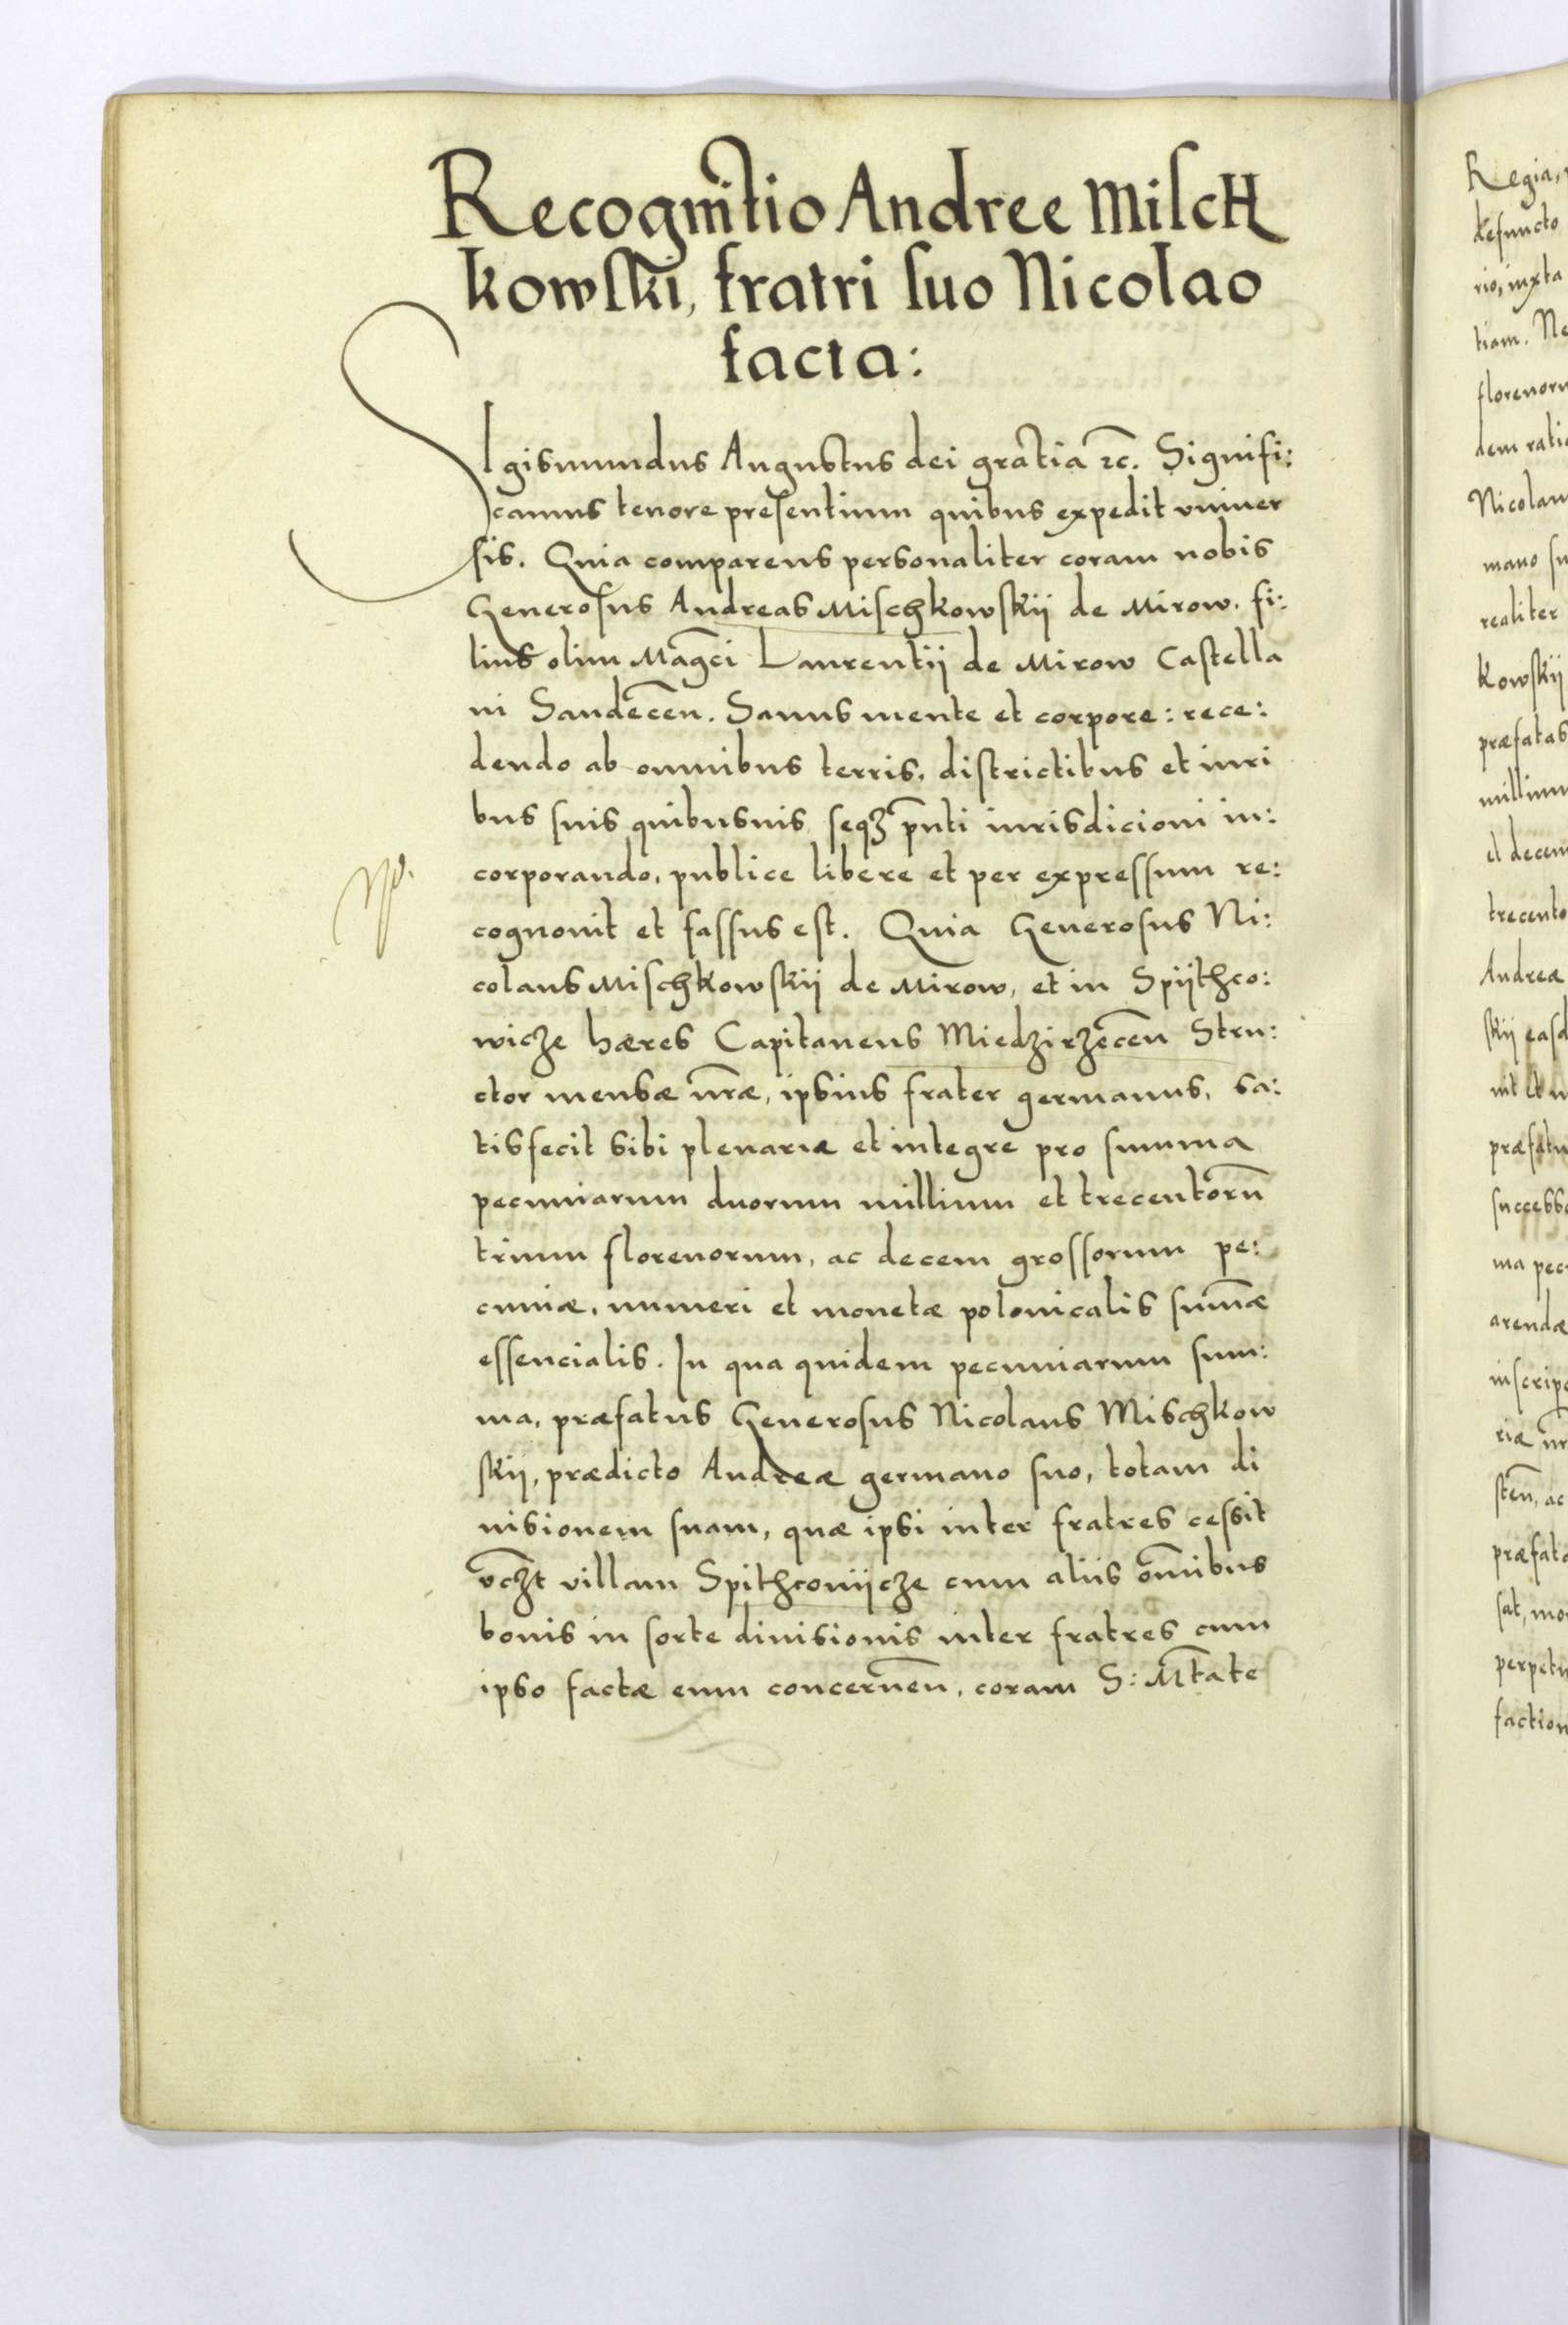 Recognitio Andree Misch
kowski, fratri suo Nicolao
facta:
SIgismundus Augustus dei gratia ꝛc. Signifi:
camus tenore presentium quibus expedit vniuer
sis. Quia comparens personaliter coram nobis
Generosus Andreas Mischkowskij de Mirow, fi:
lius olim Magci Laurentij de Mirow Castella
ni Sandecen. Sanus mente et corpore: rece:
dendo ab omnibus terris, districtibus et iuri
bus suis quibusuis seqꝫ pnti iurisdicioni in:
corporando, publice libere et per expressum re:
cognouit et fassus est. Quia Generosus Ni:
colaus Mischkowskij de Mirow, et in Spijthco:
wicze hæres Capitaneus Miedzirzecen Stru:
ctor mensæ nræ, ipsius frater germanus, sa:
tisfecit sibi plenariæ et integre pro summa
pecuniarum duorum millium et trecentoru
trium florenorum, ac decem grossorum pe:
cuniæ, numeri et monetæ polonicalis sumæ
essencialis. In qua quidem pecuniarum sum:
ma, præfatus Generosus Nicolaus Mischkow
skij, prædicto Andreæ germano suo, totam di
uisionem suam, quæ ipsi inter fratres cessit
vczt villam Spithcouijcze cum aliis omibus
bonis in sorte diuisionis inter fratres cum
ipso factæ eum concernen, coram S: Mtate
Regia,
defuncto
rio, iuxta
tiam. Ne
florenoru
dem ratio
Nicolau
mano su
realiter
kowskij
præfatas
millium
et decem
trecento
Andreæ
skij easd
præfatu
successo
ma pec
arendæ
inscrip
riæ nr
sten, ac
præfata
sat, mo
perpetu
faction